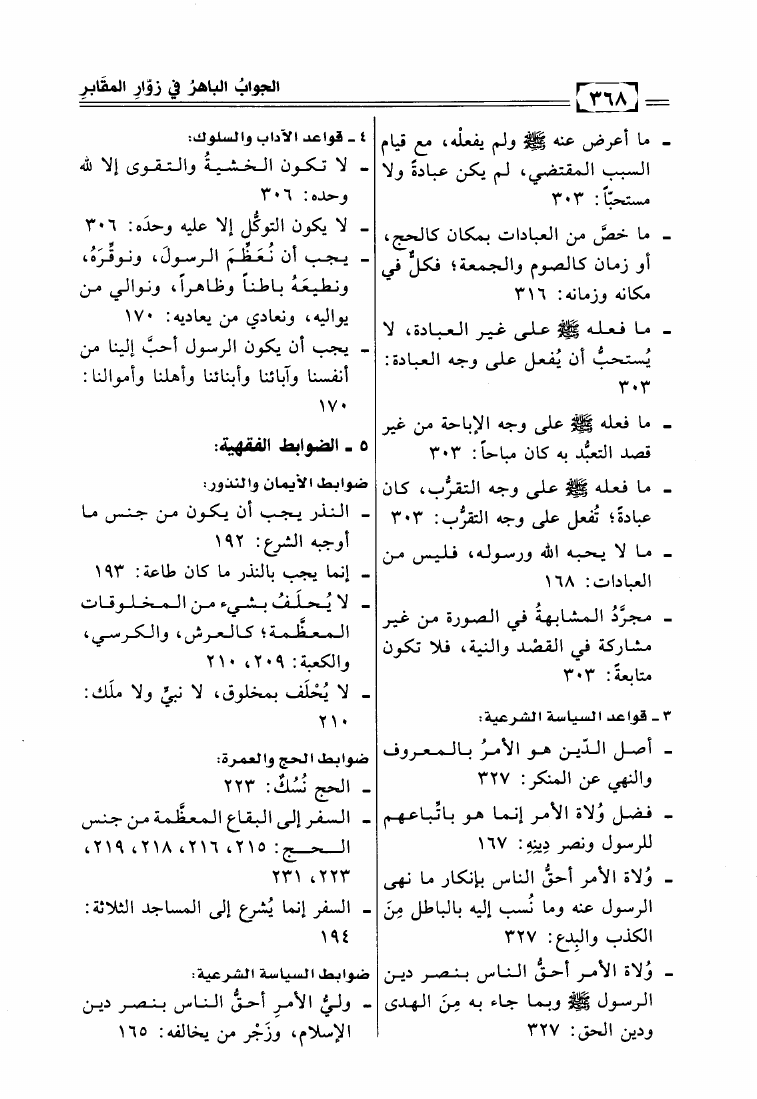 ٣٦٨
الجوابُ الباهرُ في زوّارِ المقَابرِ
- ما أعرض عنه ﷺ ولم يفعلْه، مع قيام
السبب المقتضي، لم يكن عبادةً ولا
مستحبّاً: ٣٠٣
- ما خصَّ من العبادات بمكان كالحج،
أو زمان كالصوم والجمعة؛ فكلٌّ في
مكانه وزمانه: ٣١٦
- ما فعله ﷺ على غير العبادة، لا
يُستحبُّ أن يُفعل على وجه العبادة:
٣٠٣
- ما فعله ﷺ على وجه الإباحة من غير
قصد التعبُّد به كان مباحاً: ٣٠٣
- ما فعله ﷺ على وجه التقرُّب، كان
عبادةً؛ تُفعل على وجه التقرُّب: ٣٠٣
- ما لا يحبه الله ورسوله، فليس من
العبادات: ١٦٨
- مجرَّدُ المشابهةُ في الصورة من غير
مشاركة في القصْد والنية، فلا تكون
متابعةً: ٣٠٣
٣ - قواعد السياسة الشرعية:
- أصل الدّين هو الأمرُ بالمعروف
والنهي عن المنكر: ٣٢٧
- فضل وُلاة الأمر إنما هو باتِّباعهم
للرسول ونصر دِينِهِ: ١٦٧
- وُلاة الأمر أحقُّ الناس بإنكار ما نهى
الرسول عنه وما نُسب إليه بالباطل مِنَ
الكذب والبِدع: ٣٢٧
- وُلاة الأمر أحقُّ الناس بنصر دين
الرسول ﷺ وبما جاء به مِنَ الهدى
ودين الحق: ٣٢٧
٤ - قواعد الآداب والسلوك:
- لا تكون الخشيةُ والتقوى إلا لله
وحده: ٣٠٦
- لا يكون التوكُّل إلا عليه وحدَه: ٣٠٦
- يجب أن نُعَظِّمَ الرسولَ، ونوقِّرَهُ،
ونطيعَهُ باطناً وظاهراً، ونوالي من
يواليه، ونعادي من يعاديه: ١٧٠
- يجب أن يكون الرسول أحبَّ إلينا من
أنفسنا وآبائنا وأبنائنا وأهلنا وأموالنا:
١٧٠
٥ - الضوابط الفقهية:
ضوابط الأيمان والنذور:
- النذر يجب أن يكون من جنس ما
أوجبه الشرع: ١٩٢
- إنما يجب بالنذر ما كان طاعة: ١٩٣
- لا يُحلَفُ بشيء من المخلوقات
المعظَّمة؛ كالعرش، والكرسي،
والكعبة: ٢٠٩، ٢١٠
- لا يُحْلَف بمخلوق، لا نبيٍّ ولا ملَك:
٢١٠
ضوابط الحج والعمرة:
- الحج نُسُكٌ: ٢٢٣
- السفر إلى البقاع المعظَّمة من جنس
الحج: ٢١٥، ٢١٦، ٢١٨، ٢١٩،
٢٢٣، ٢٣١
- السفر إنما يُشرع إلى المساجد الثلاثة:
١٩٤
ضوابط السياسة الشرعية:
- وليُّ الأمرِ أحقُّ الناس بنصر دين
الإسلام، وزَجْر من يخالفه: ١٦٥